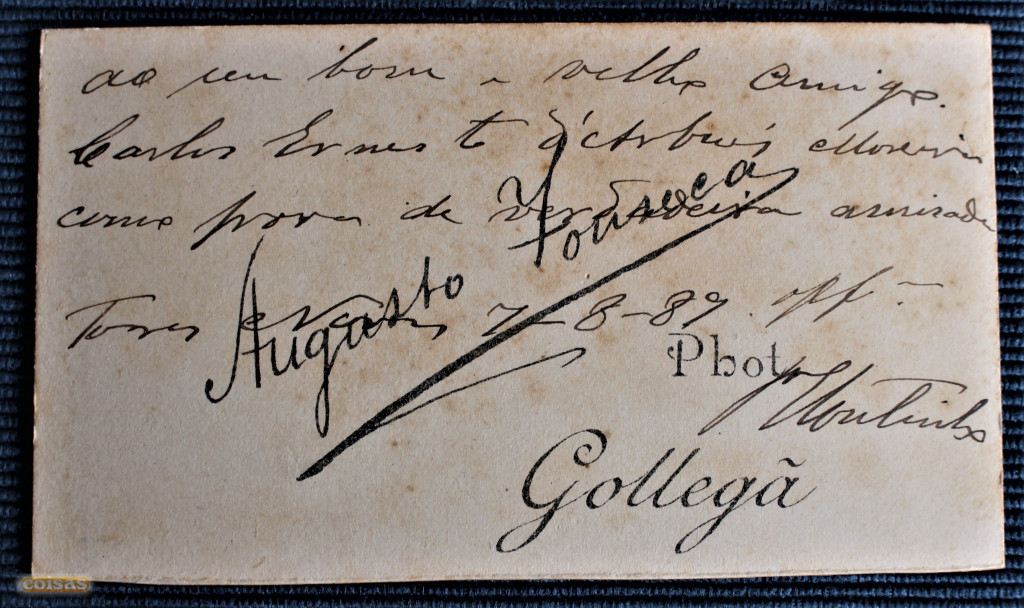 ao seu bom e velho amigo.
Carlos Ernesto Moreira
como prova de verdadeira amisade
Augusto Fonseca
Torres 7-8-89
Phot
Moutinho
Gollegã
coisas